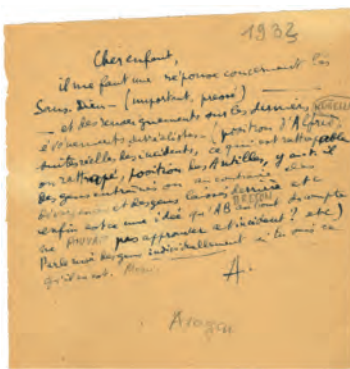 1932
Cher enfant,
il me faut une réponse concernant les
Sans-Dieu - (important, pressé)
- et des renseignements sur les derniers
événements surréalistes (position d'Alfred,
suites réelles des incidents, ce qui est rattrapable
ou rattrapé, position des Antilles, y a-t-il
des gens entraînés ou au contraire des
et des gens la voie dernière etc
enfin est-ce une idée qu'AB BRETON au bout du compte
ne pas approuver cet incident ? etc)
Parle-moi des gens individuellement si tu sais ce
qu'il en est.
A.
Aragon